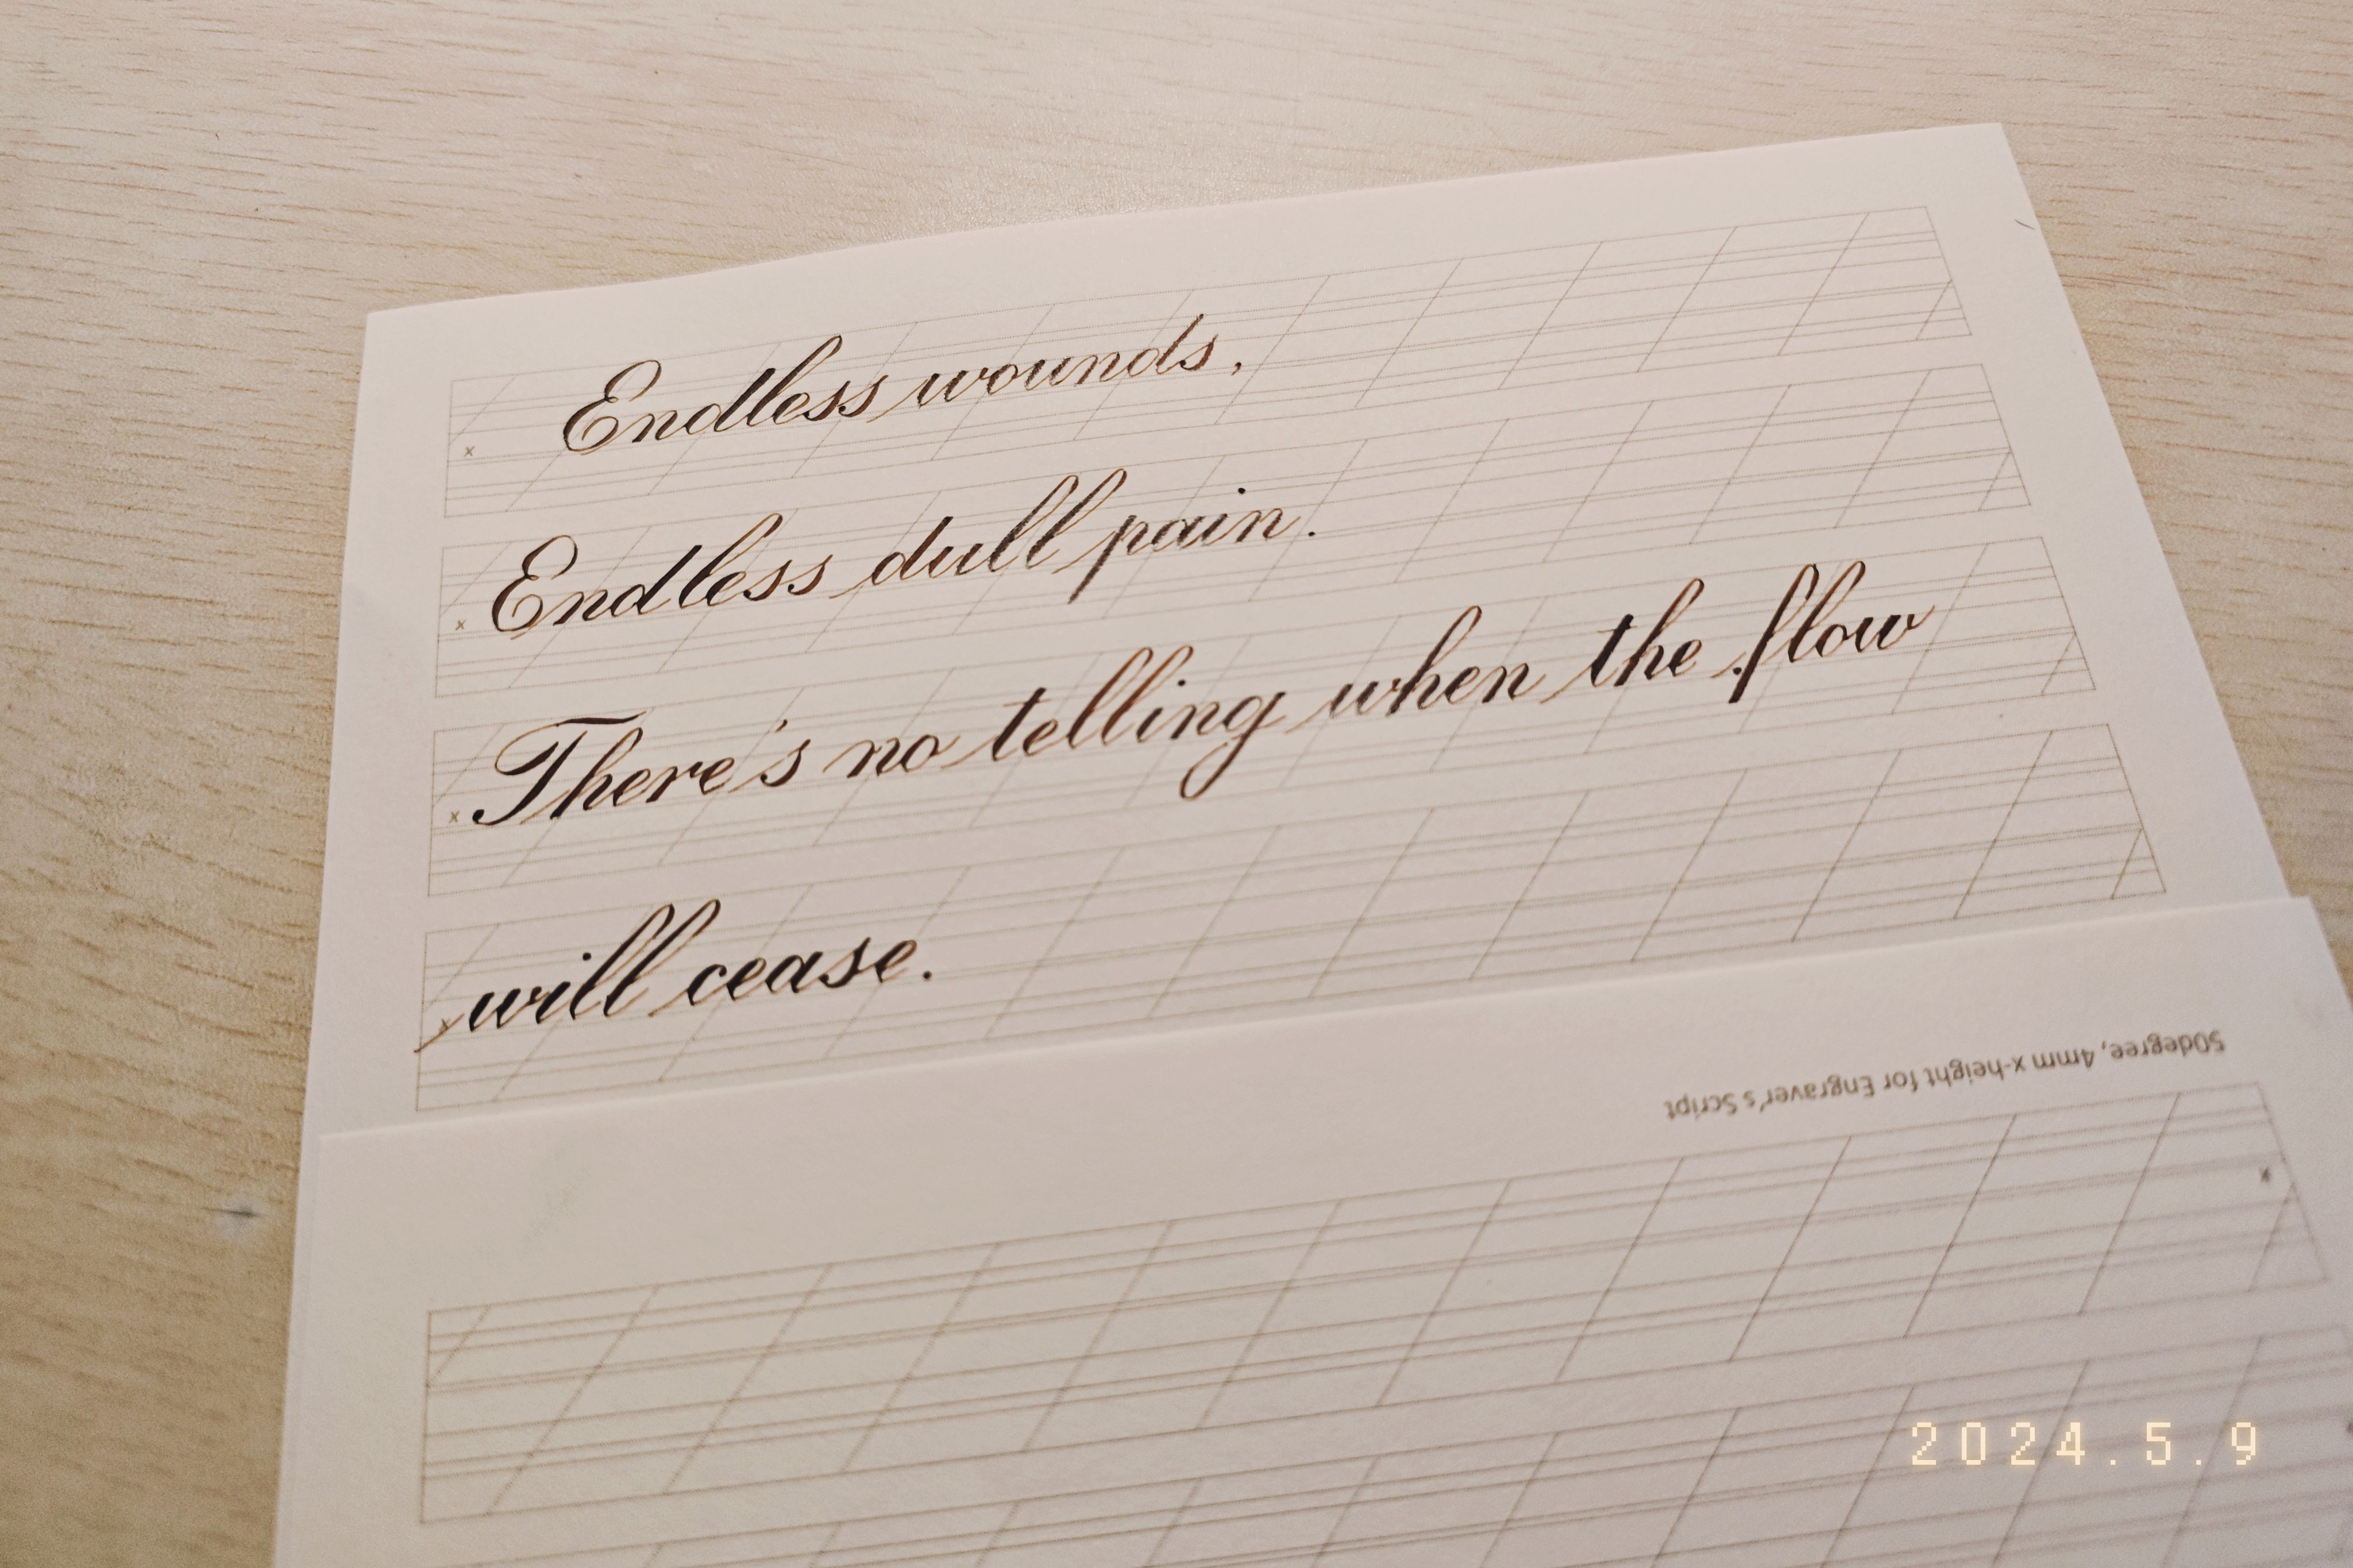 Endless wounds,
Endless dull pain.
There's no telling when the flow
will cease.
50degree, 4mm x-height for Engraver's Script
2024.5.9